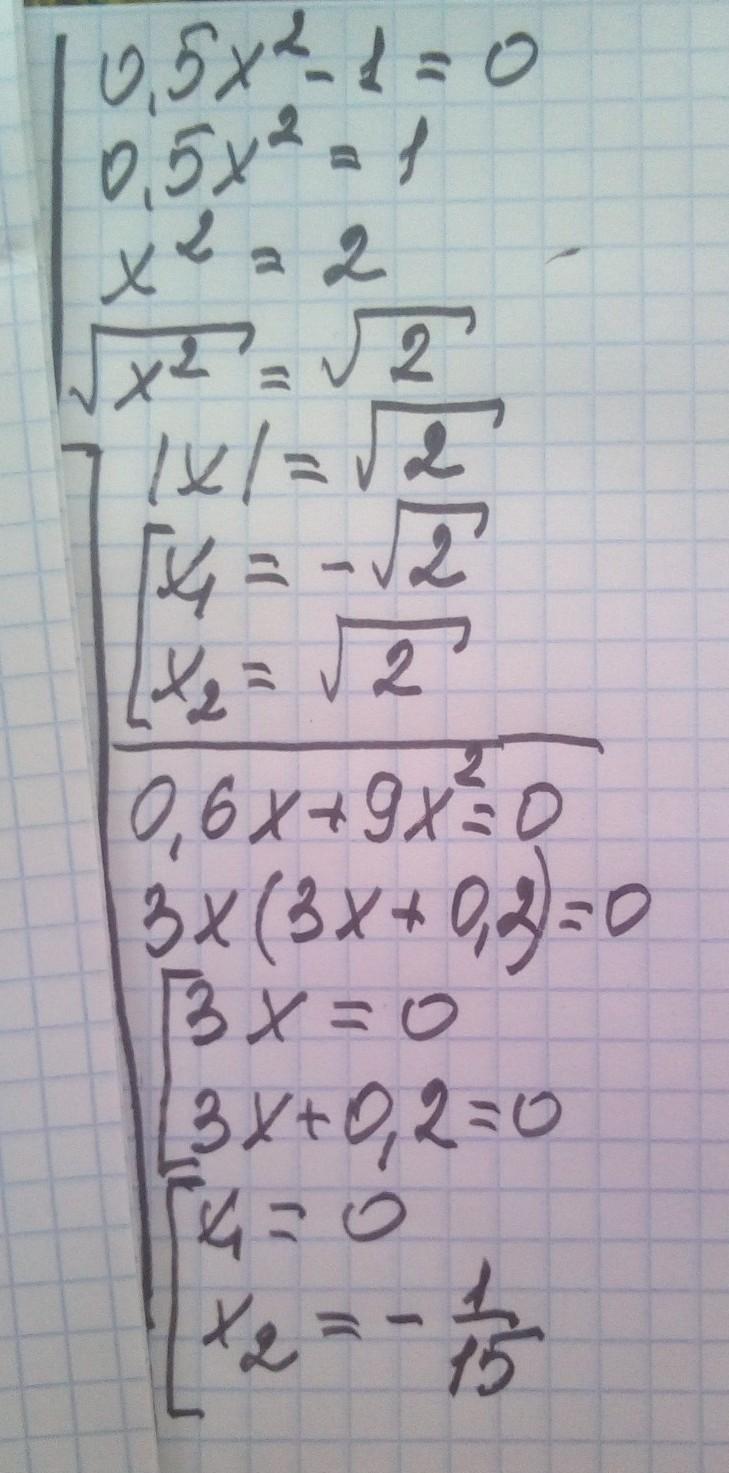 0,5x² - 1 = 0
0,5x² = 1
x² = 2
√x² = √2
|x| = √2
[x₁ = -√2
x₂ = √2
0,6x + 9x² = 0
3x(3x + 0,2) = 0
[3x = 0
3x + 0,2 = 0
[x₁ = 0
x₂ = - 1/15